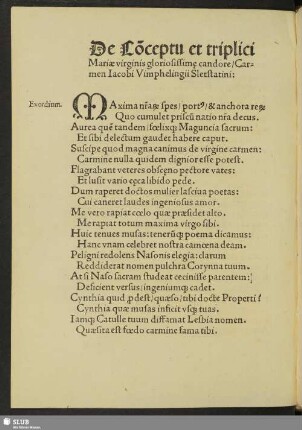 De Cõceptu et triplici
Mariæ virginis gloriosissimę candore/ Car-
men Iacobi Vimphelingii Sletstatini:
Exordium.
MAxima nr̃aꝝ spes/ portꝰ/ & anchora reꝝ
Quo cumulet priscũ natio nr̃a decus.
Aurea quẽ tandem/ fœlixqꝫ Maguncia sacrum:
Et sibi delectum gaudet habere caput.
Suscipe quod magna canimus de virgine carmen:
Carmine nulla quidem dignior esse potest.
Flagrabant veteres obsceno pectore vates:
Et lusit vario cęca libido pede.
Dum raperet doctos mulier lasciua poetas:
Cui caneret laudes ingeniosus amor.
Me vero rapiat cœlo quæ præsidet alto.
Me rapiat totum maxima virgo sibi.
Huic tenues musas: tenerũqꝫ poema dicamus:
Hanc vnam celebret nostra camœna deam.
Peligni redolens Nasonis elegia: clarum
Reddiderat nomen pulchra Corynna tuum.
At si Naso sacram studeat cecinisse parentem:
Deficient versus/ ingeniumqꝫ cadet.
Cynthia quid ꝓdest/ quæso/ tibi docte Properti?
Cynthia quæ musas inficit vsqꝫ tuas.
Iamqꝫ Catulle tuum diffamat Lesbia nomen.
Quæsita est fœdo carmine fama tibi.
SLUB